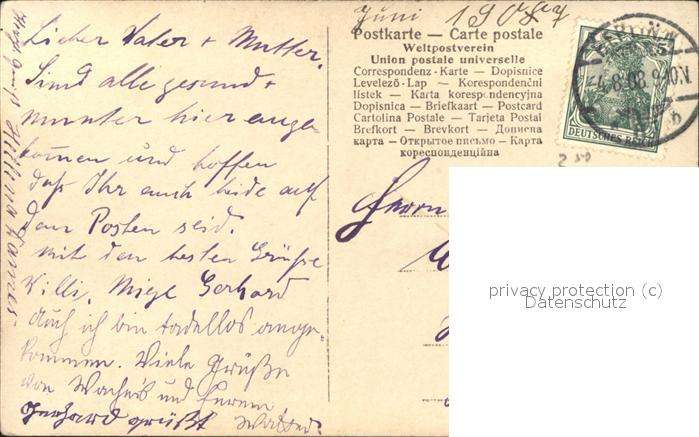 Juni 1908
Lieber Vater + Mutter.
Sind alle gesund +
munter hier ange
kommen und hoffen
daß Ihr auch beide auf
dem Posten seid.
Mit den besten Grüße
Willi, Gerhard
Auch ich bin tadellos ange-
kommen. Viele Grüße
von und Eurem
Gerhard grüßt
Postkarte — Carte postale
Weltpostverein
Union postale universelle
Correspondenz-Karte — Dopisnice
Levelező-Lap — Korespondenční
lístek — Karta korespondencyjna
Dopisnica — Briefkaart — Postcard
Cartolina Postale — Tarjeta Postal
Brefkort — Brevkort — Дописна
карта — Открытое письмо — Карта
кореспонденційна
5
DEUTSCHES REICH
BERLIN
6.8.08. 9-10V
Herrn
privacy protection (c)
Datenschutz